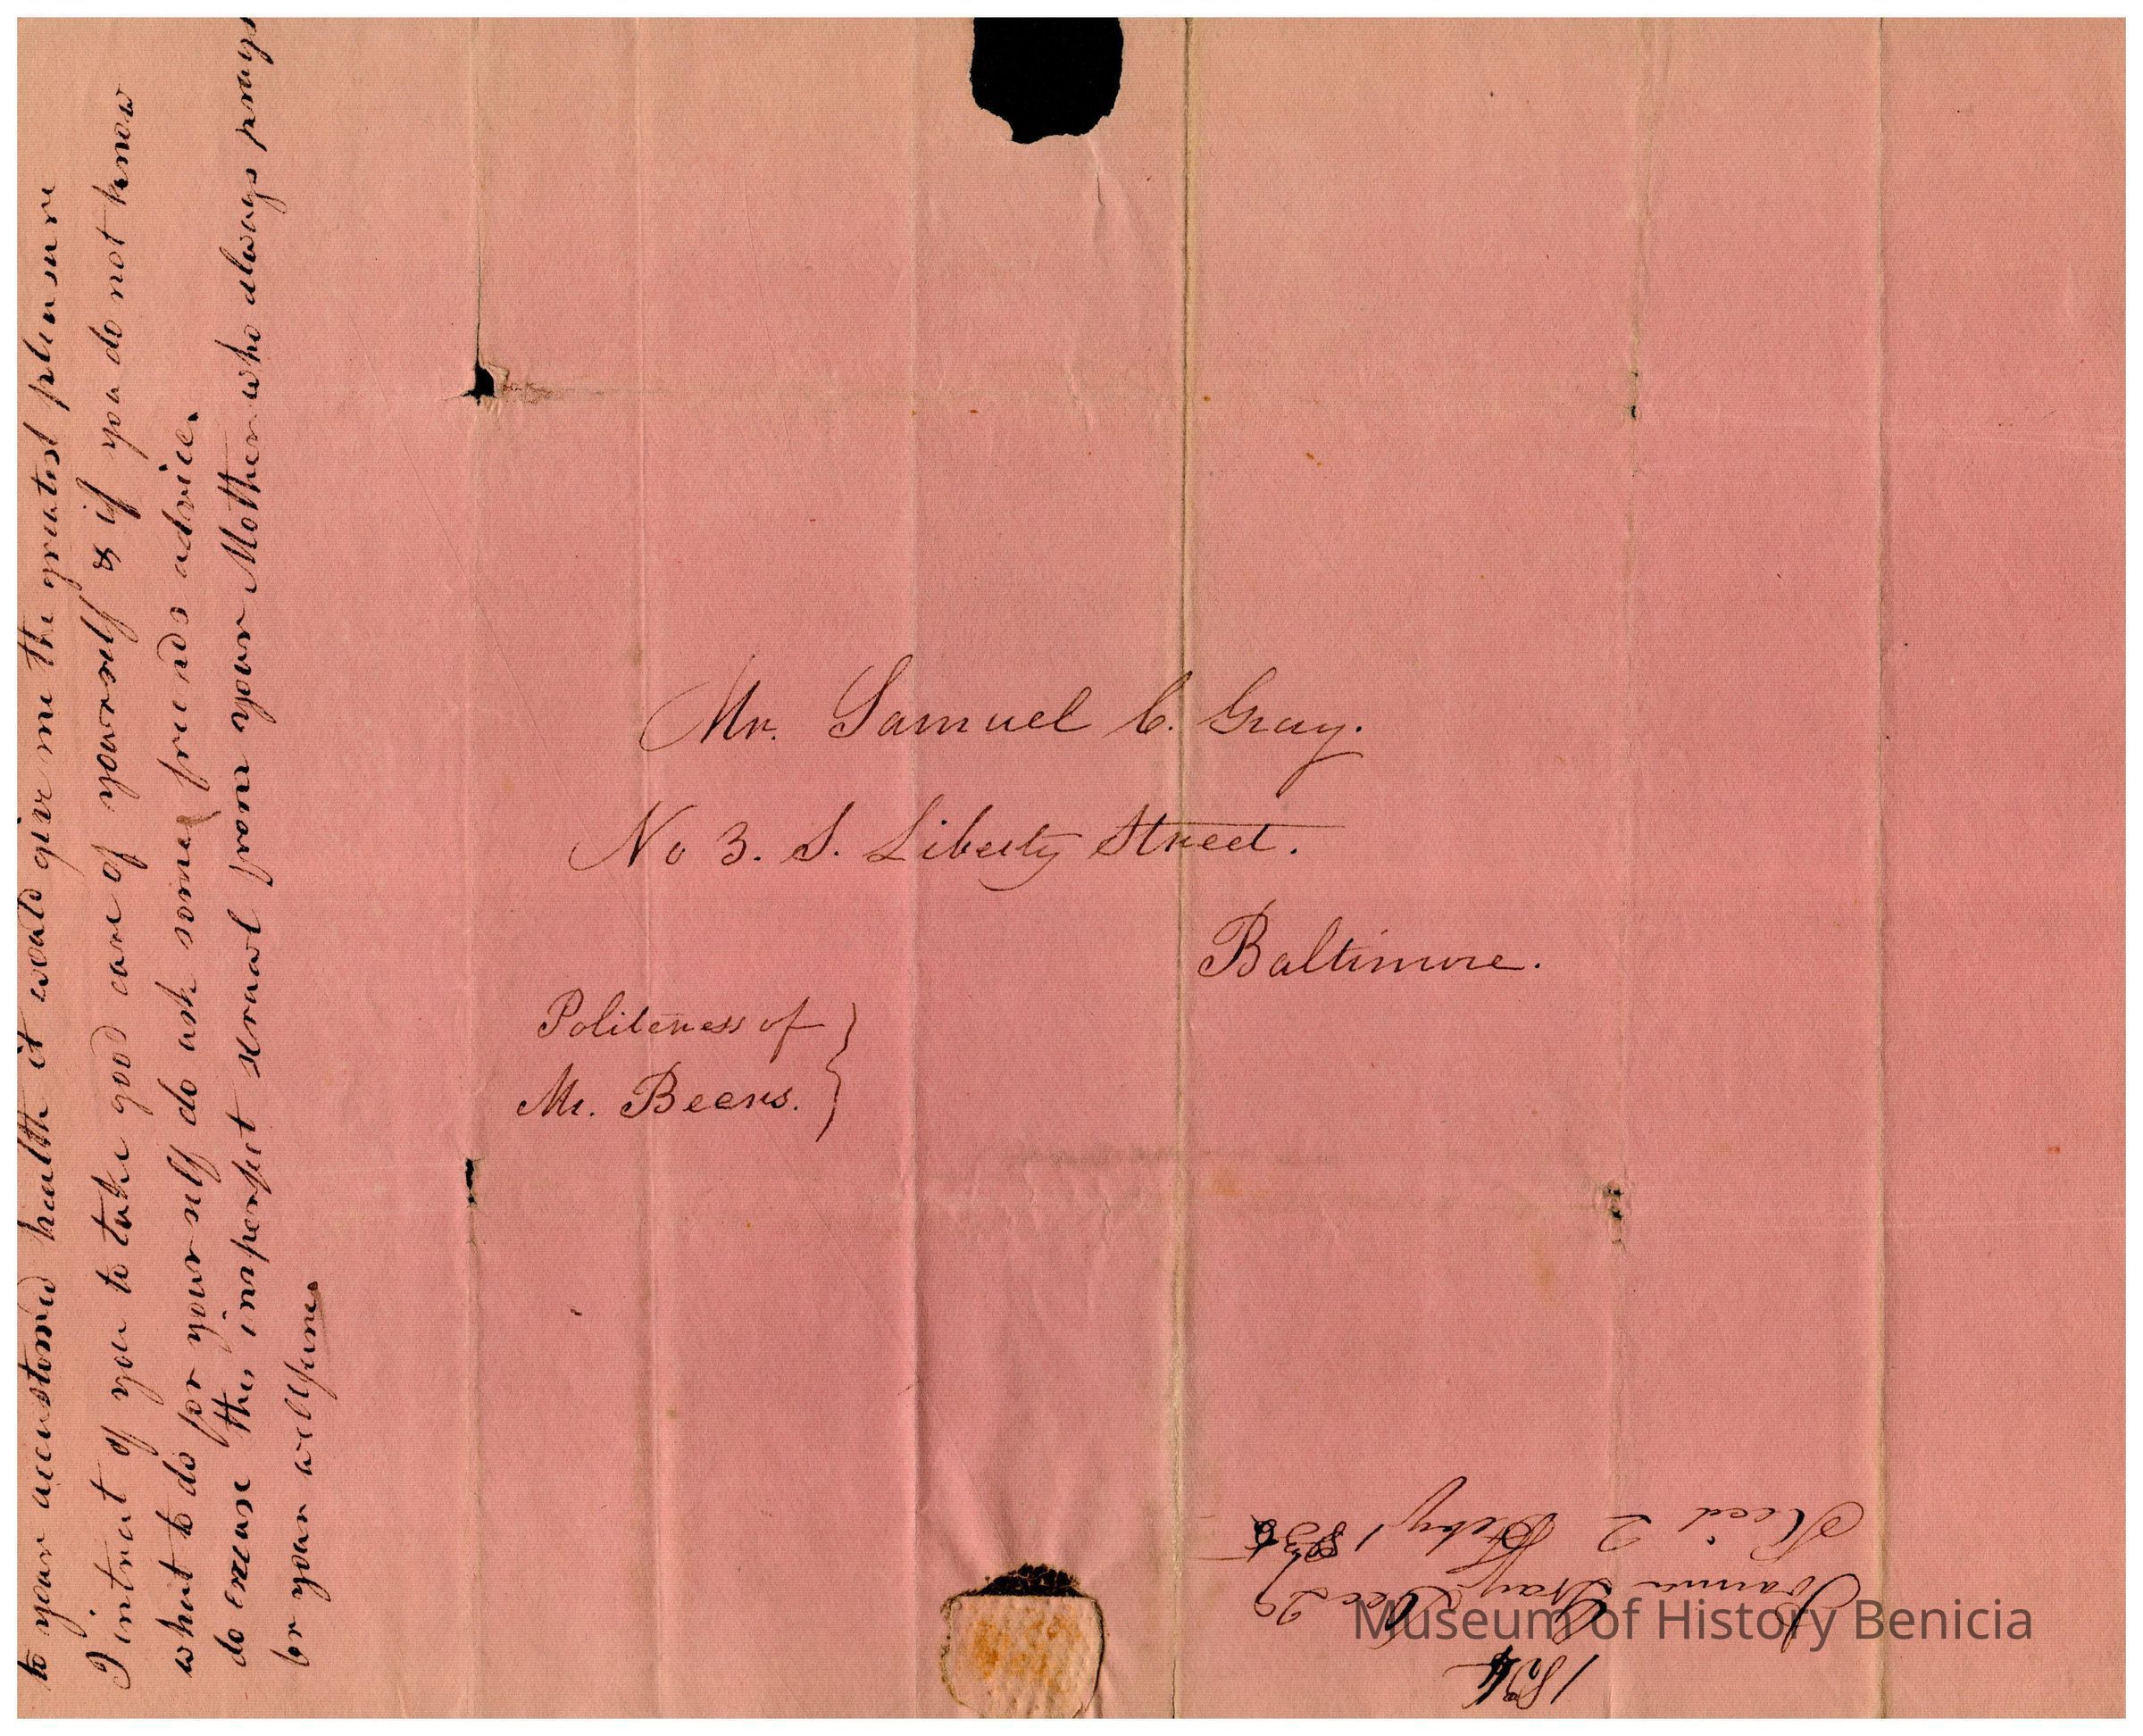 to your accustomed health it would give me the greatest pleasure
I intreat of you to take good care of yourself & if you do not know
what to do for your self do ask some friends advice.
do excuse this imperfect scrawl from your Mother who always prays
for your wellfare
Mr. Samuel C. Gray.
No 3. S. Liberty Street.
Baltimore.
Politeness of
Mr. Beans.
1834
Joanna Gray Dec 29
Recd 2 Feby 1835
Museum of History Benicia